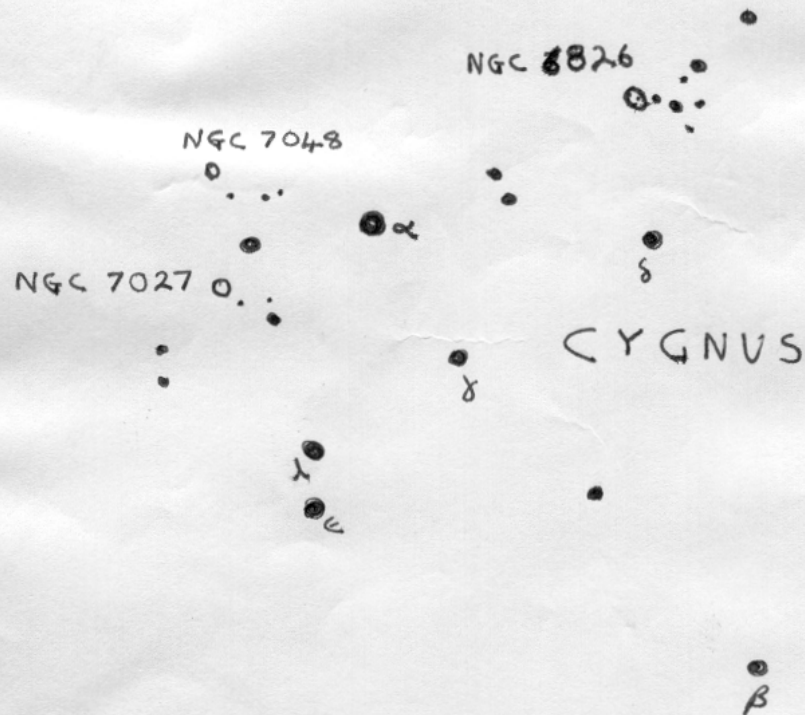 NGC 6826
NGC 7048
α
δ
NGC 7027
CYGNUS
γ
λ
ε
β